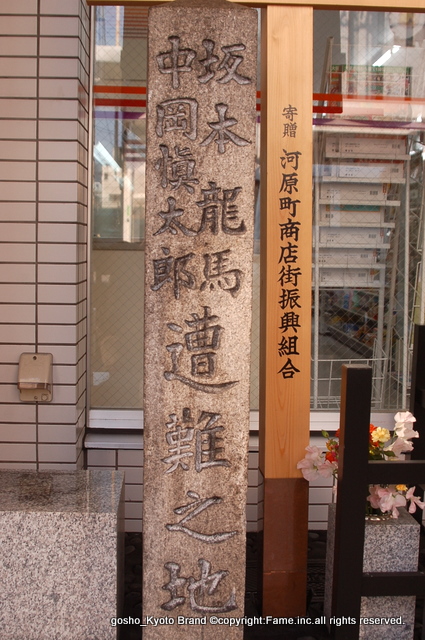 坂本龍馬
中岡慎太郎
遭難之地
寄贈 河原町商店街振興組合
gosho_Kyoto Brand ©copyright:Fame.inc.all rights reserved.